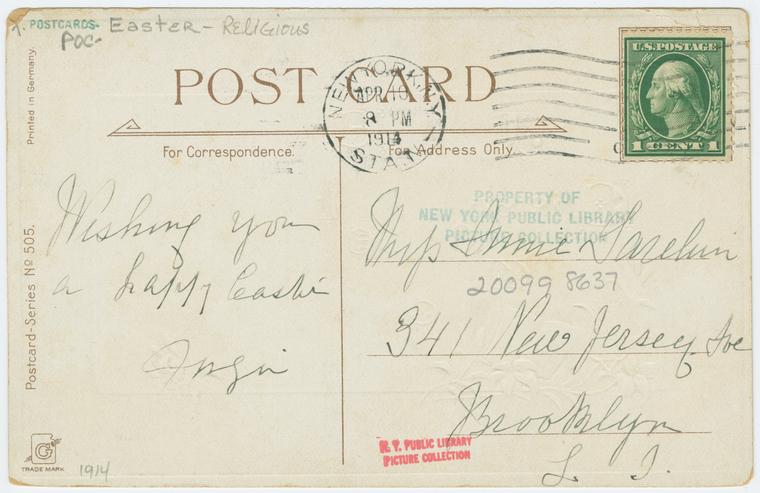 POSTCARDS-
POC- Easter - Religious
Printed in Germany.
POST CARD
U.S. POSTAGE
1 CENT 1
NEW YORK, N.Y.
APR 10
8 PM
1914
STA
For Correspondence.
For Address Only.
PROPERTY OF
NEW YORK PUBLIC LIBRARY
PICTURE COLLECTION
Wishing you
a happy Easter
Miss Annie
20099 8637
341 New Jersey Ave
Brooklyn
L. I.
Postcard-Series No 505.
N. Y. PUBLIC LIBRARY
PICTURE COLLECTION
G
TRADE MARK
1914